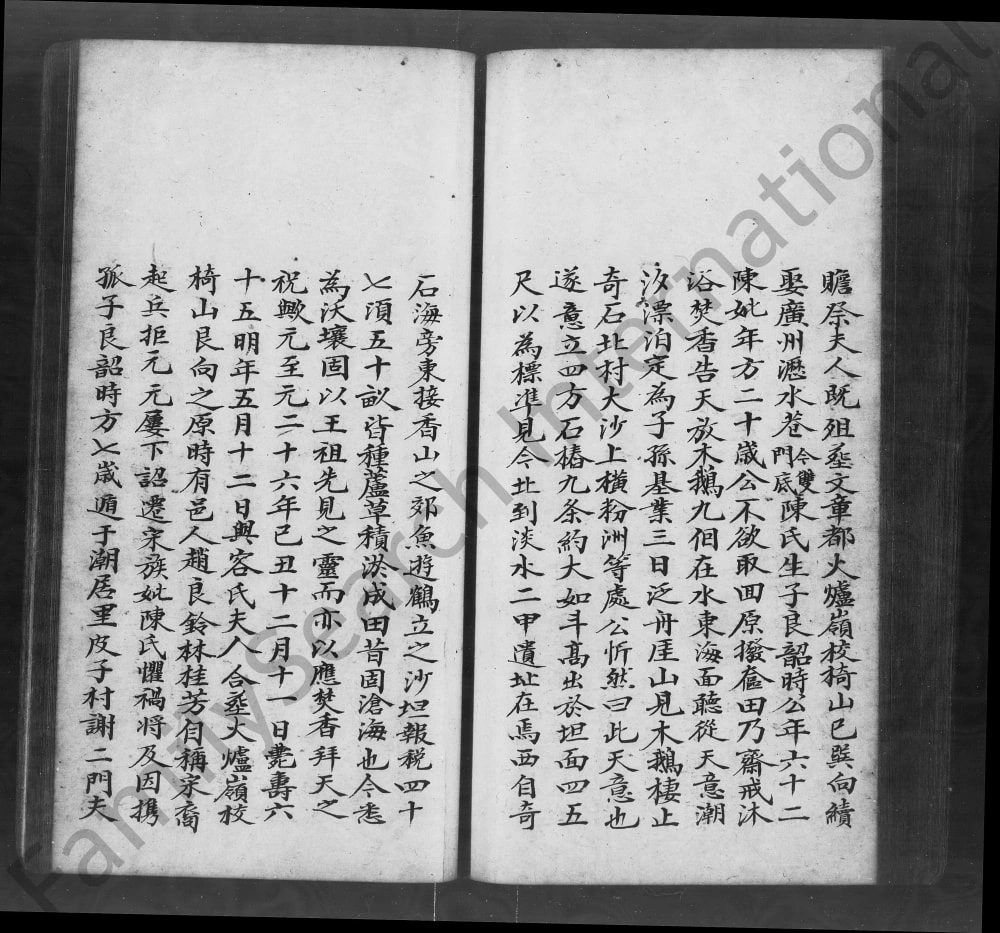 贍祭夫人既殂塟文章都火爐嶺校椅山巳巽向續
娶廣州瀝水巷今雙門底陳氏生子良韶時公年六十二
陳妣年方二十歲公不欲取回原撥奩田乃齋戒沐
浴焚香告天放木鵝九個在水東海面聽從天意潮
汐漂泊定為子孫基業三日泛舟厓山見木鵝棲止
奇石北村大沙上橫粉洲等處公忻然曰此天意也
遂意立四方石樁九条約大如斗高出於坦面四五
尺以為標準見今北到淡水二甲遺址在焉西自奇
石海旁東接香山之郊魚遊鶴立之沙坦報税四十
七頃五十畝皆種蘆草積淤成田昔固滄海也今悉
為沃壤固以王祖先見之靈而亦以應焚香拜天之
祝歟元至元二十六年己丑十二月十一日薨壽六
十五明年五月十二日與容氏夫人合塟火爐嶺校
椅山艮向之原時有邑人趙良鈐林桂芳自稱宋裔
起兵拒元元屢下詔遷宋族妣陳氏懼禍將及因携
孤子良韶時方七歲遁于潮居里皮子村謝二門夫
FamilySearch International